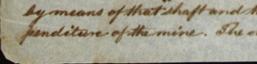 by means of that shaft and t
penditure of the mine. The